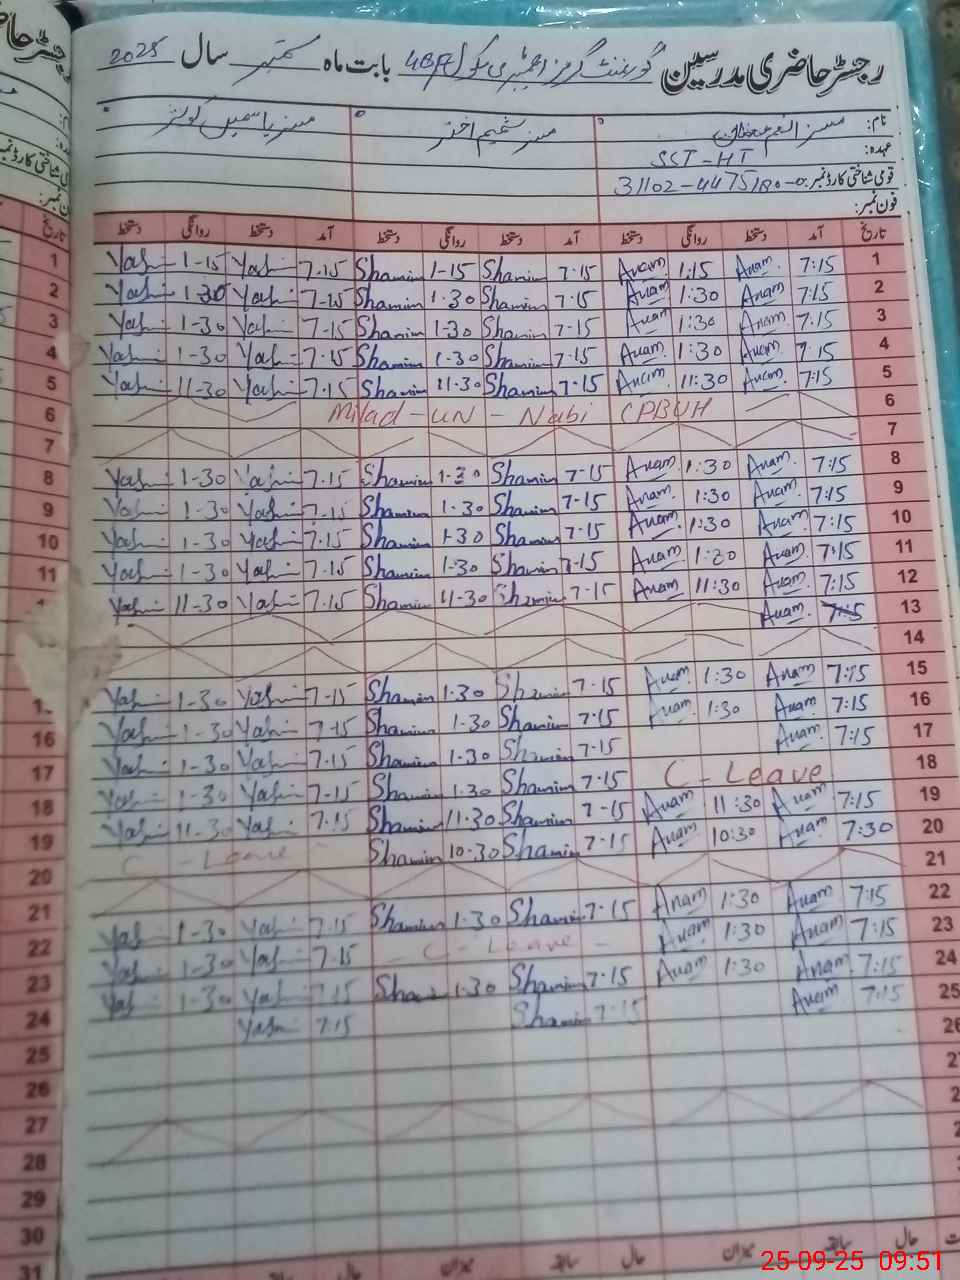 رجسٹر حاضری مدرسین گورنمنٹ گرلز ایلیمنٹری سکول 4BP بابت ماہ ستمبر سال 2025
نام: مسز شمیم اختر مسز یاسمین کوثر
عہدہ: SST-HT
قومی شناختی کارڈ نمبر:
فون نمبر:
تاریخ آمد دستخط روانگی دستخط آمد دستخط روانگی دستخط آمد دستخط روانگی دستخط
1 7:15 Anam 1:15 Anam 7-15 Shamim 1-15 Shamim 7-15 Yasmin 1-15 Yasmin 1
2 7:15 Anam 1:30 Anam 7-15 Shamim 1-30 Shamim 7-15 Yasmin 1-30 Yasmin 2
3 7:15 Anam 1:30 Anam 7-15 Shamim 1-30 Shamim 7-15 Yasmin 1-30 Yasmin 3
4 7:15 Anam 1:30 Anam 7-15 Shamim 1-30 Shamim 7-15 Yasmin 1-30 Yasmin 4
5 7:15 Anam 11:30 Anam 7-15 Shamim 11-30 Shamim 7-15 Yasmin 11-30 Yasmin 5
6 Milad-UN-Nabi (PBUH 6
7 7
8 7:15 Anam 1:30 Anam 7-15 Shamim 1-30 Shamim 7-15 Yasmin 1-30 Yasmin 8
9 7:15 Anam 1:30 Anam 7-15 Shamim 1-30 Shamim 7-15 Yasmin 1-30 Yasmin 9
10 7:15 Anam 1:30 Anam 7-15 Shamim 1-30 Shamim 7-15 Yasmin 1-30 Yasmin 10
11 7:15 Anam 1:30 Anam 7-15 Shamim 1-30 Shamim 7-15 Yasmin 1-30 Yasmin 11
12 7:15 Anam 11:30 Anam 7-15 Shamim 11-30 Shamim 7-15 Yasmin 11-30 Yasmin
13 7:15 Anam
14
15 7:15 Anam 1:30 Anam 7-15 Shamim 1-30 Shamim 7-15 Yasmin 1-30 Yasmin
16 7:15 Anam 1:30 Anam 7-15 Shamim 1-30 Shamim 7-15 Yasmin 1-30 Yasmin 16
17 7:15 Anam 7-15 Shamim 1-30 Shamim 7-15 Yasmin 1-30 Yasmin 17
18 C-Leave 7-15 Shamim 1-30 Shamim 7-15 Yasmin 1-30 Yasmin 18
19 7:15 Anam 11:30 Anam 7-15 Shamim 11-30 Shamim 7-15 Yasmin 11-30 Yasmin 19
20 7:30 Anam 10:30 Anam 7-15 Shamim 10-30 Shamim C-Leave 20
21 21
22 7:15 Anam 1:30 Anam 7-15 Shamim 1-30 Shamim 7-15 Yasmin 1-30 Yasmin 22
23 7:15 Anam 1:30 Anam C-Leave 7-15 Yasmin 1-30 Yasmin 23
24 7:15 Anam 1:30 Anam 7-15 Shamim 1-30 Shamim 7-15 Yasmin 1-30 Yasmin 24
25 7:15 Anam 7-15 Shamim 7-15 Yasmin 25
26 26
27
28
29
30
31
حال سابقہ میزان حال سابقہ میزان حال سابقہ
25-09-25 09:51